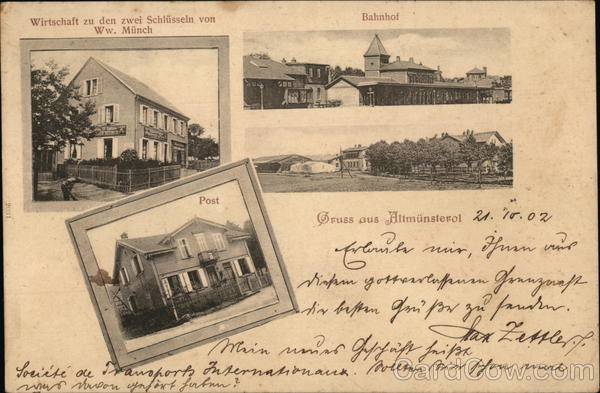 Wirtschaft zu den zwei Schlüsseln von
Ww. Münch
Bahnhof
Post
Gruss aus Altmünsterol
21. IV. 02
Erlaube mir, Ihnen aus
diesem gottverlassenen Grenznest
die besten Grüße zu senden.
Max Zettler
Mein neues Geschäft heißt
Société de Transports Internationaux. Sollten Sie schon mal
was davon gehört haben?
CardCow.com